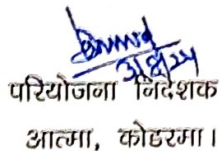 परियोजना निदेशक
आत्मा, कोडरमा।